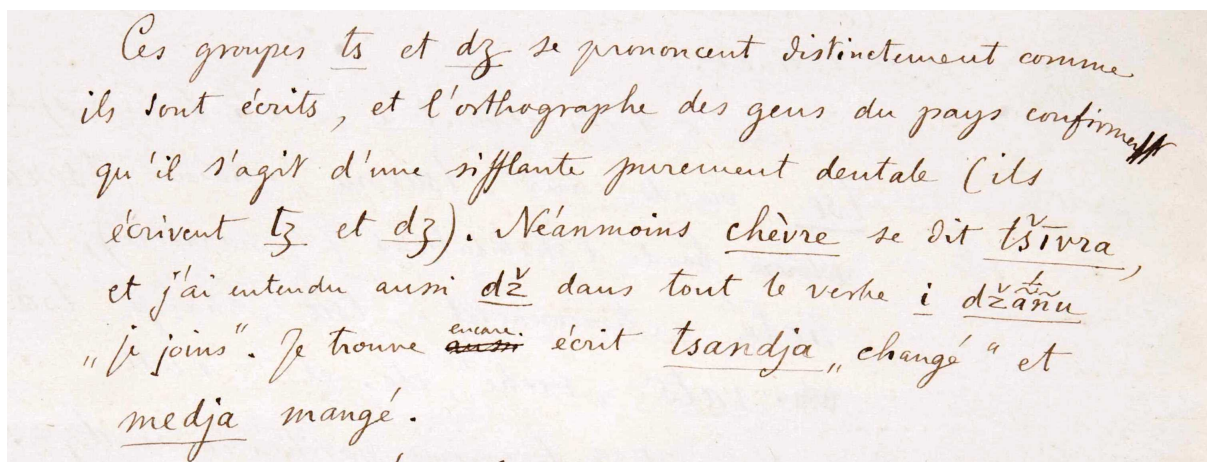 Ces groupes ts et dz se prononcent distinctement comme
ils sont écrits, et l'orthographe des gens du pays confirme
qu'il s'agit d'une sifflante purement dentale (ils
écrivent tz et dz). Néanmoins chèvre se dit tšīvra,
et j'ai entendu aussi dž dans tout le verbe i džãñu
„je joins“. Je trouve encore écrit tsandja „changé“ et
medja mangé.